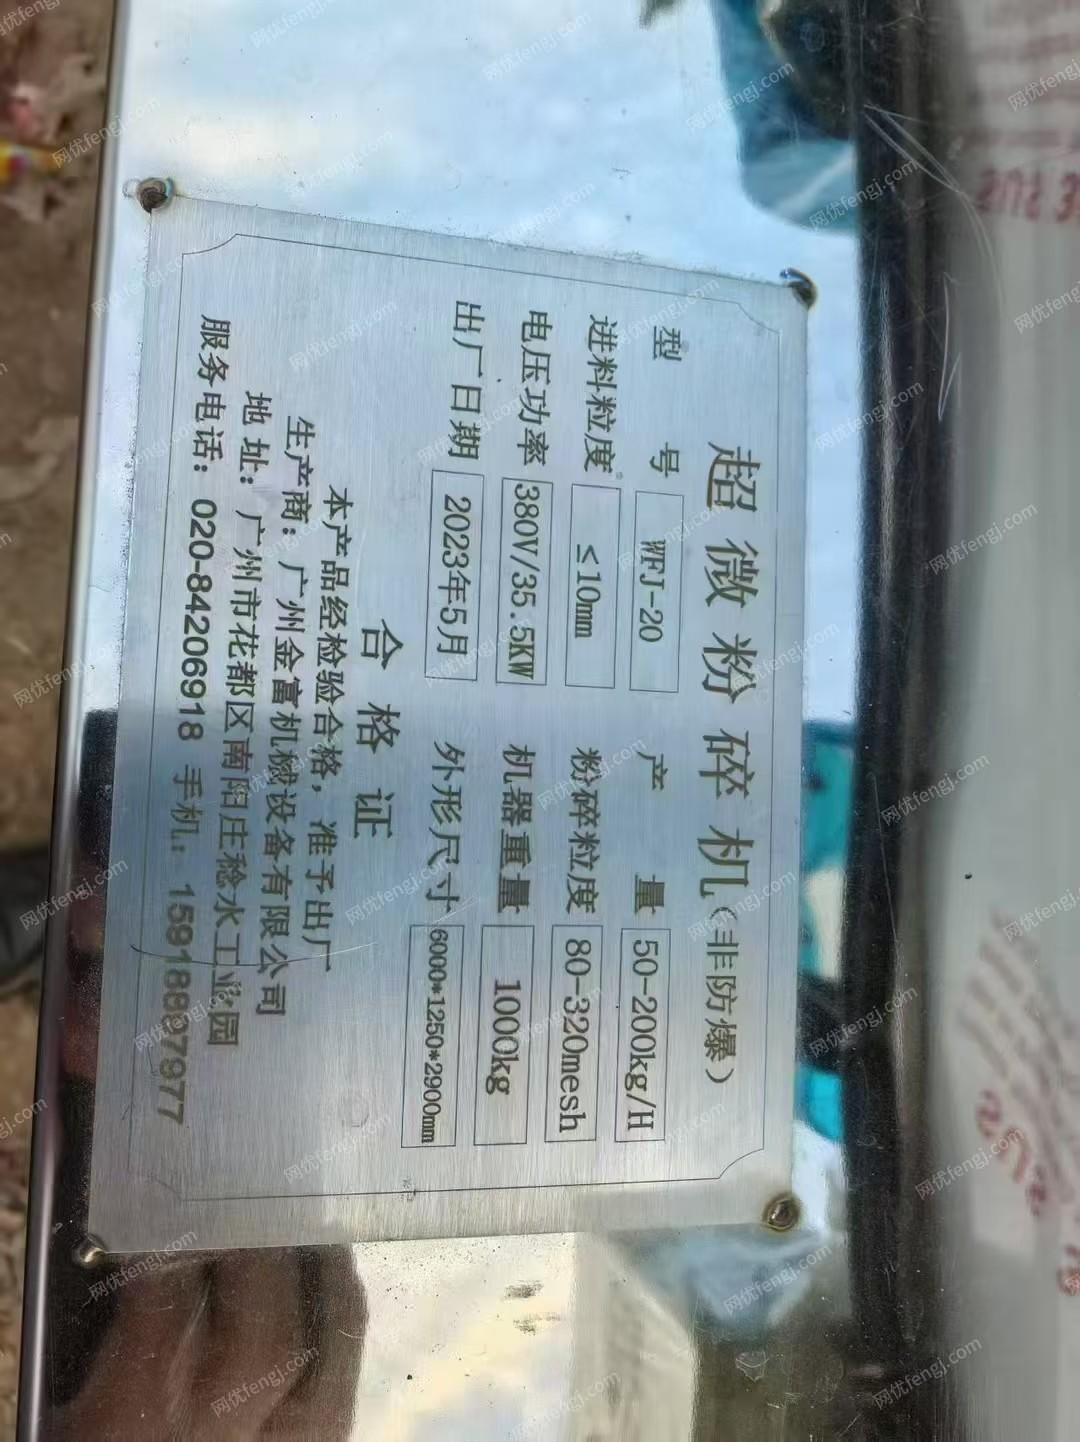 超微粉碎机(非防爆)
型号 WFJ-20 产量 50-200kg/H
进料粒度 ≤10mm 粉碎粒度 80-320mesh
电压功率 380V/35.5KW 机器重量 1000kg
出厂日期 2023年5月 外形尺寸 6000*1250*2900mm
合格证
本产品经检验合格，准予出厂
生产商：广州金富机械设备有限公司
地址：广州市花都区南阳庄稔水工业园
服务电话：020-84206918 手机：15918897977
网优fengj.com